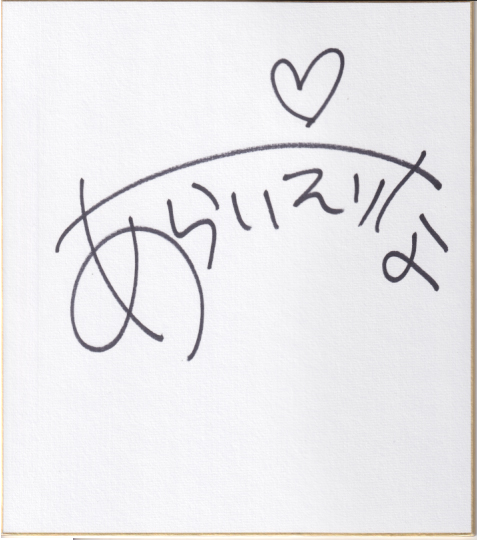 あらいえりな